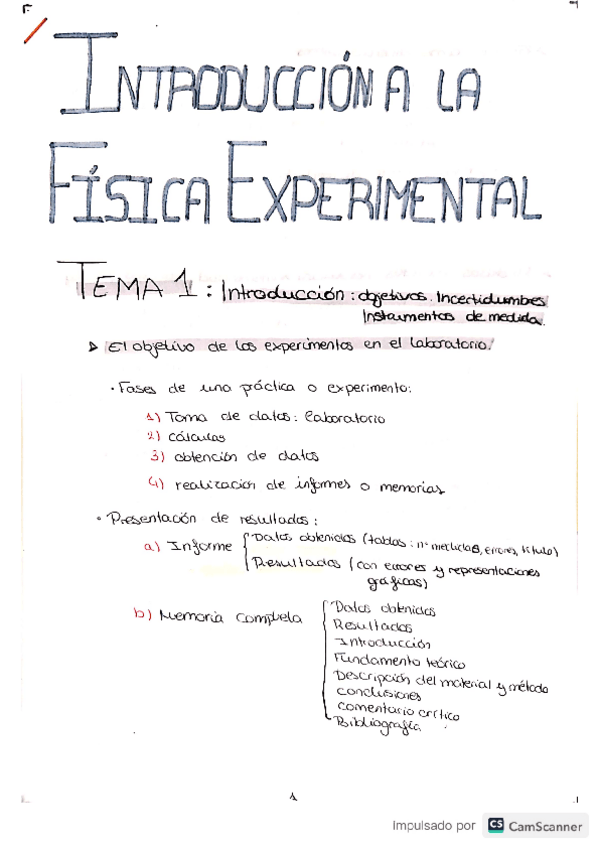 INTRODUCCIÓN A LA
FÍSICA EXPERIMENTAL
TEMA 1: Introducción: objetivos. Incertidumbres
Instrumentos de medida.
El objetivo de los experimentos en el laboratorio.
· Fases de una práctica o experimento:
1) Toma de datos: laboratorio
2) cálculos
3) obtención de datos
4) realización de informes o memorias
· Presentación de resultados:
a) Informe { Datos obtenidos (tablas: nº medidas, errores, título)
Resultados (con errores y representaciones
gráficas)
b) Memoria completa { Datos obtenidos
Resultados
Introducción
Fundamento teórico
Descripción del material y método
conclusiones
comentario crítico
Bibliografía
1
Impulsado por CS CamScanner